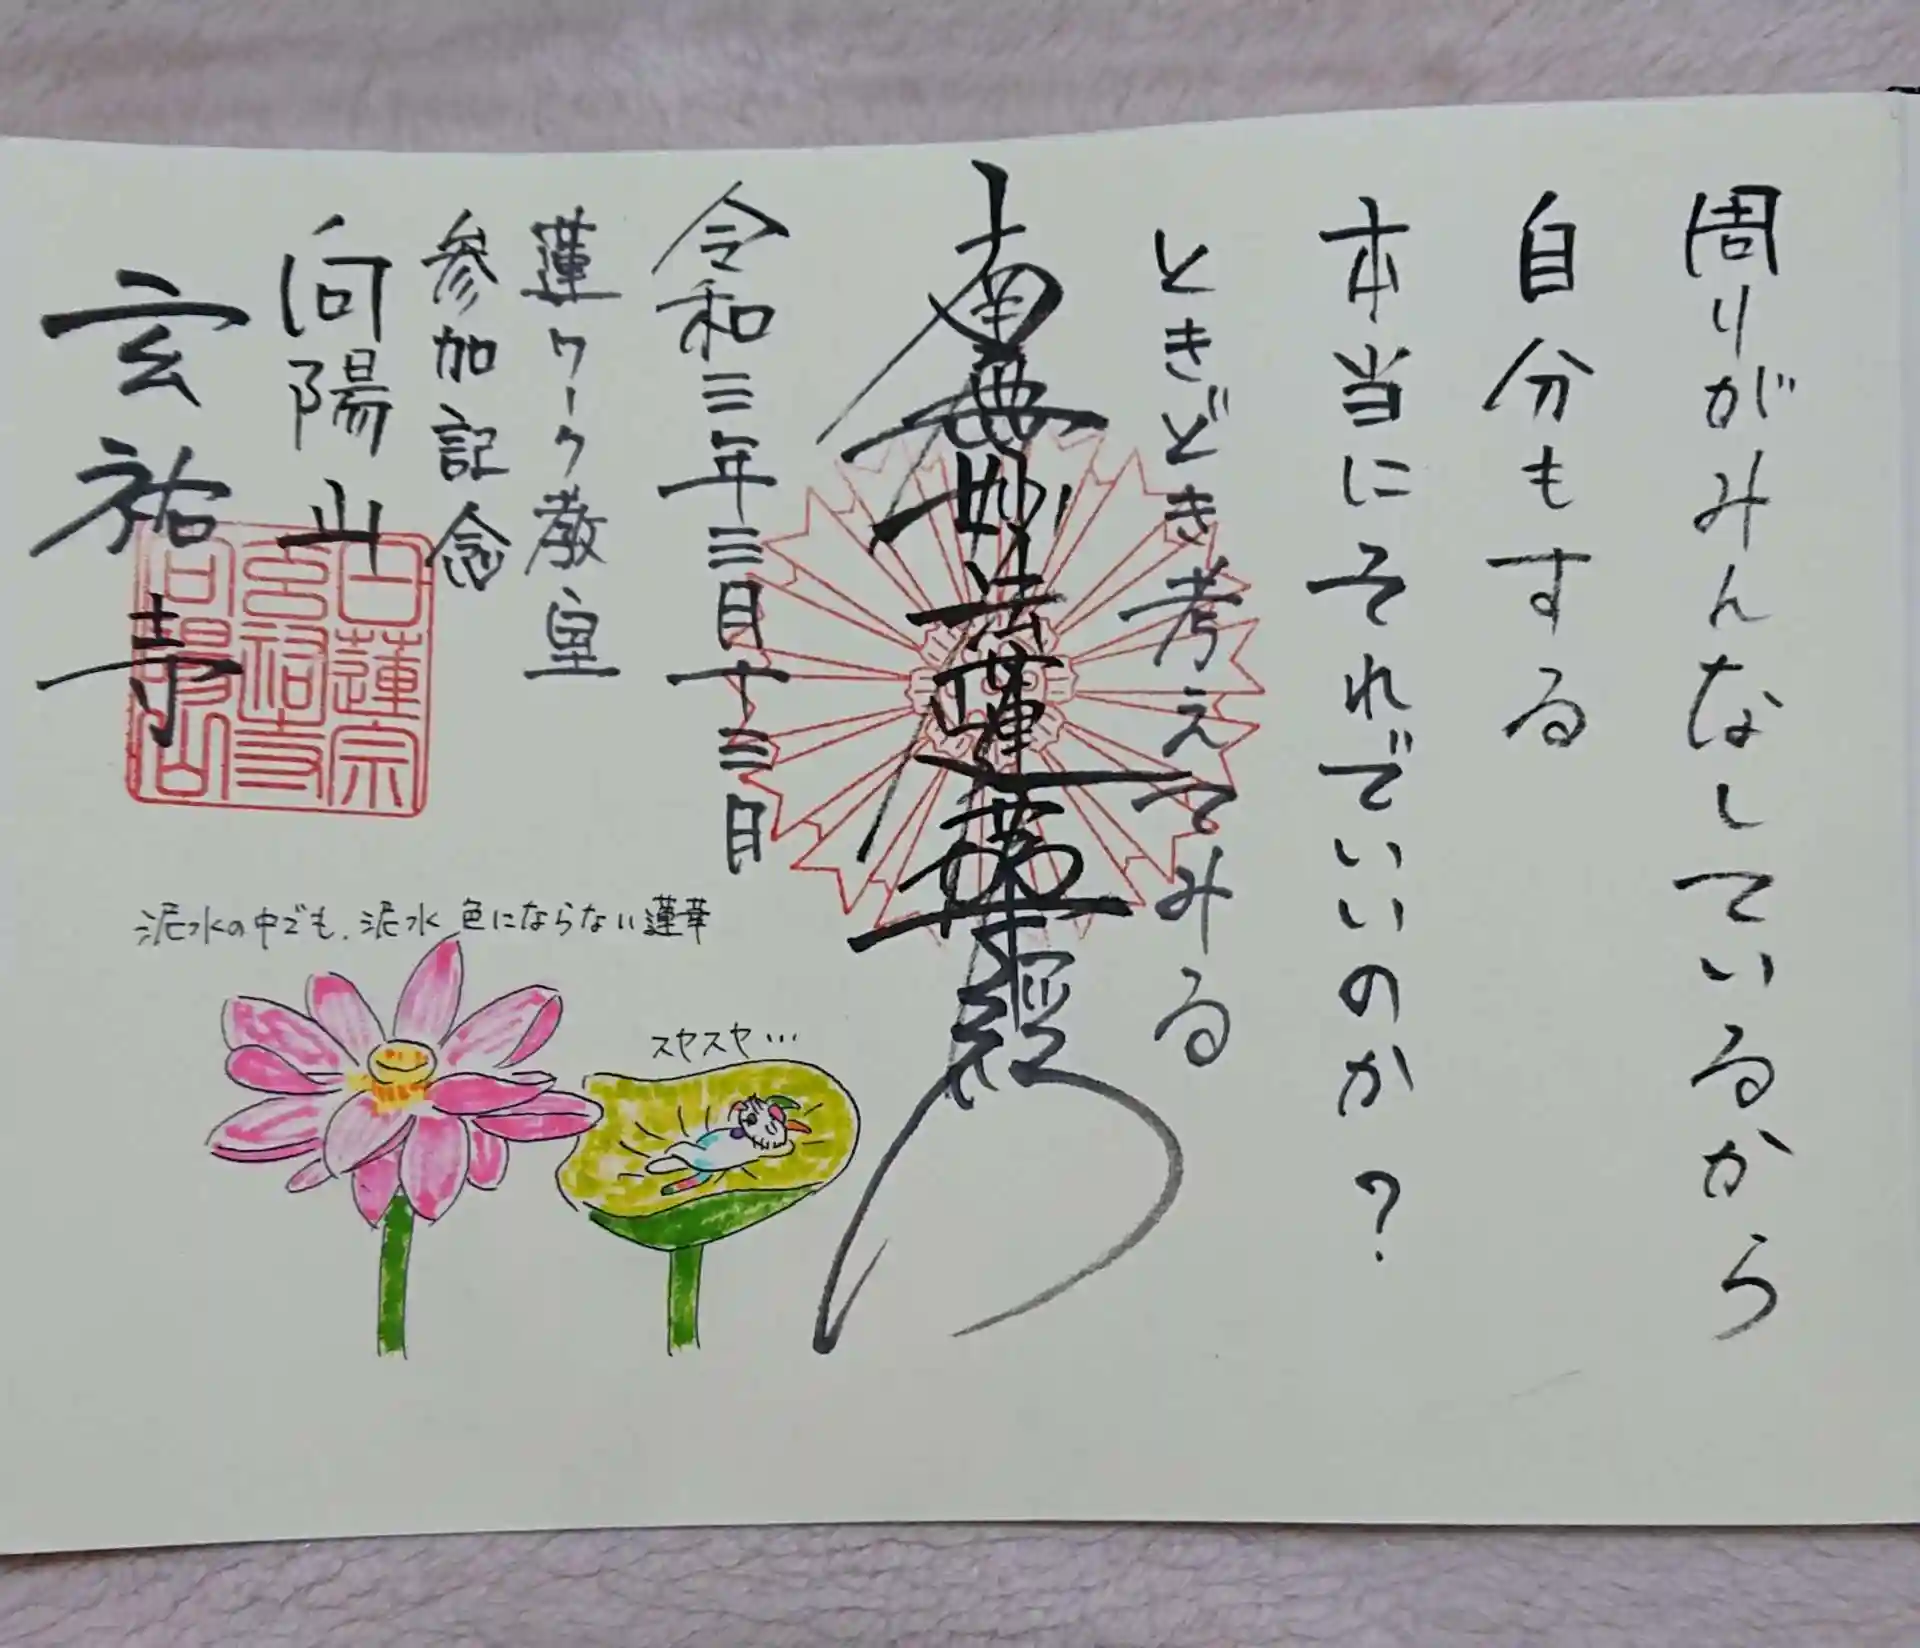 周りがみんなしているから
自分もする
本当にそれでいいのか?
ときどき考えてみる
南無妙法蓮華経
令和三年三月十三日
蓮ワーク教室
参加記念
向陽山
玄祐寺
日蓮宗
玄祐寺
向陽山
泥水の中でも、泥水色にならない蓮華
スヤスヤ…